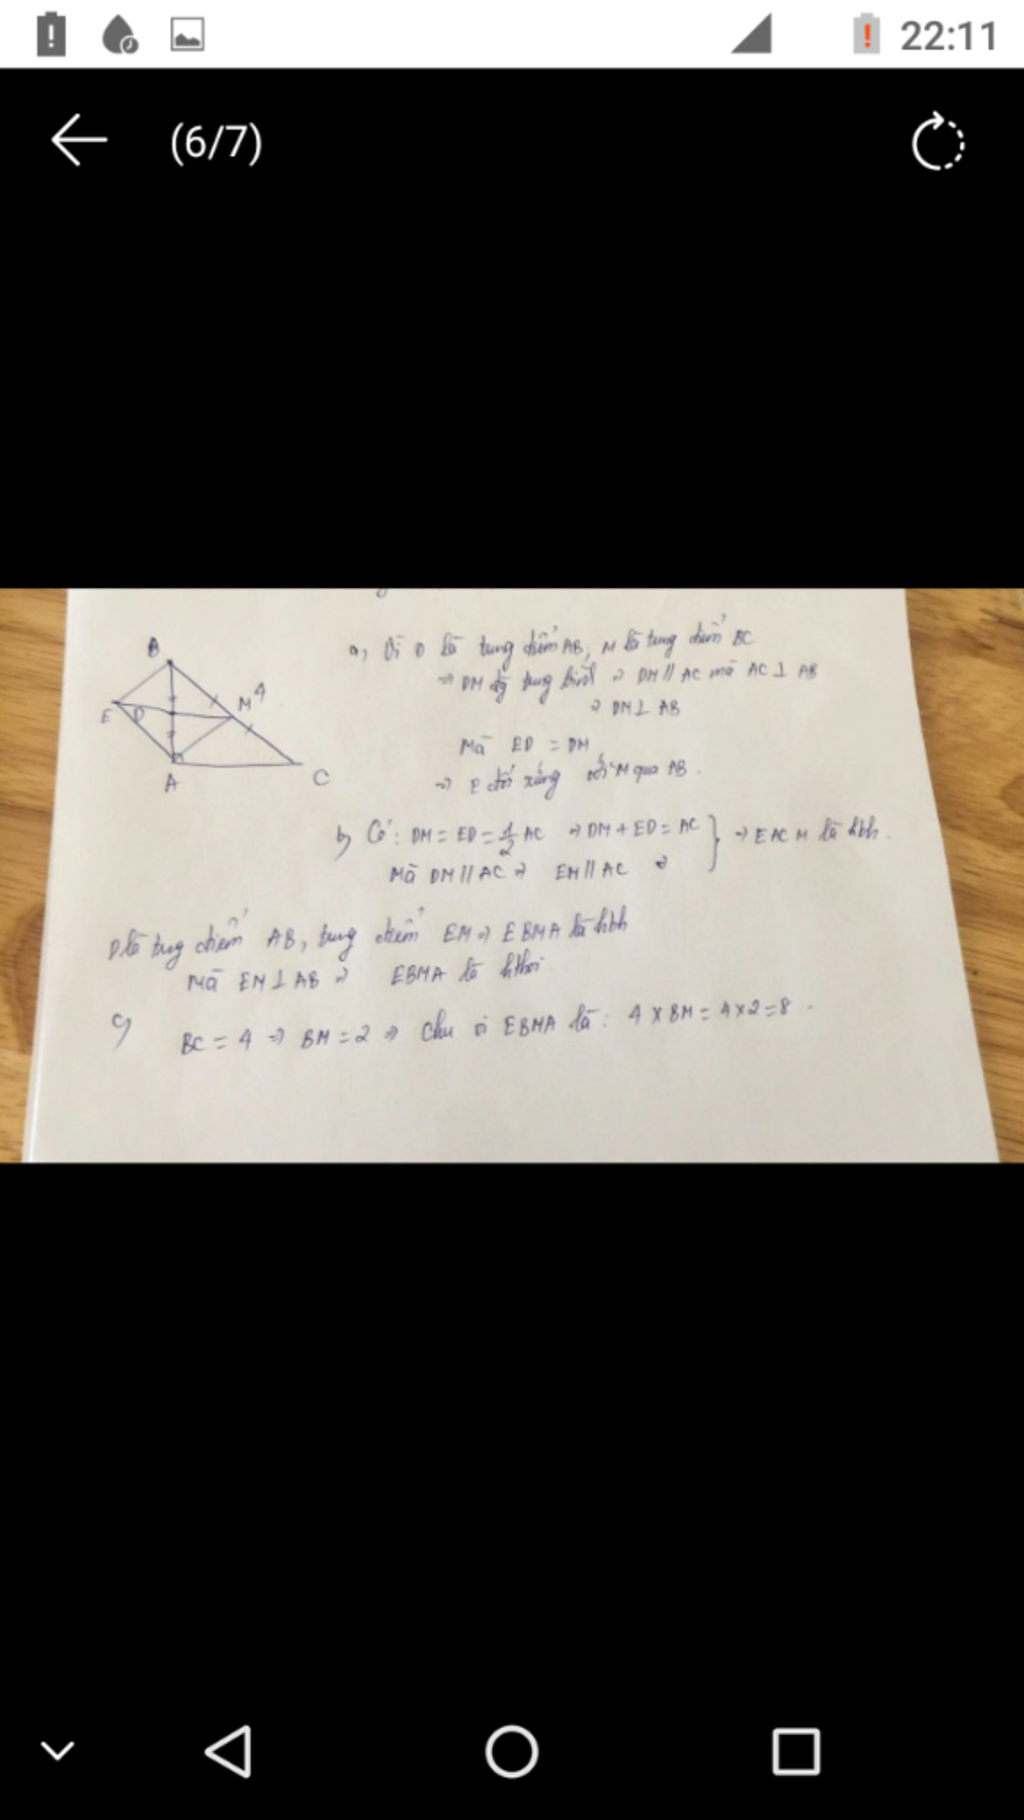 22:11
(6/7)
B
E D M 4
A C
a, Vì D là tung điểm AB, M là tung điểm BC
⇒ DM đg tung bình ⇒ DM // AC mà AC ⊥ AB
⇒ DM ⊥ AB
Mà ED = DM
⇒ E đối xứng với M qua AB.
b, Có: DM = ED = 1/2 AC ⇒ DM + ED = AC } ⇒ EACM là hbh.
Mà DM // AC ⇒ EM // AC ⇒
D là tug điểm AB, tung điểm EM ⇒ EBMA là hbh
Mà EM ⊥ AB ⇒ EBMA là hthoi.
c, BC = 4 ⇒ BM = 2 ⇒ Chu vi EBMA là: 4 x BM = 4 x 2 = 8.